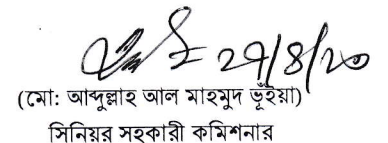 ২৭/৪/২০
(মো: আব্দুল্লাহ আল মাহমুদ ভূঁইয়া)
সিনিয়র সহকারী কমিশনার